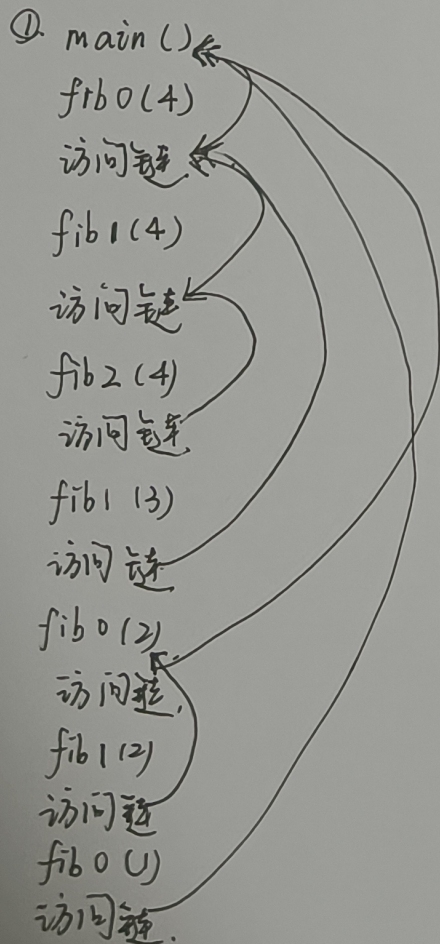 ①. main()
fib0(4)
访问链
fib1(4)
访问链
fib2(4)
访问链
fib1(3)
访问链
fib0(2)
访问链
fib1(2)
访问链
fib0(1)
访问链